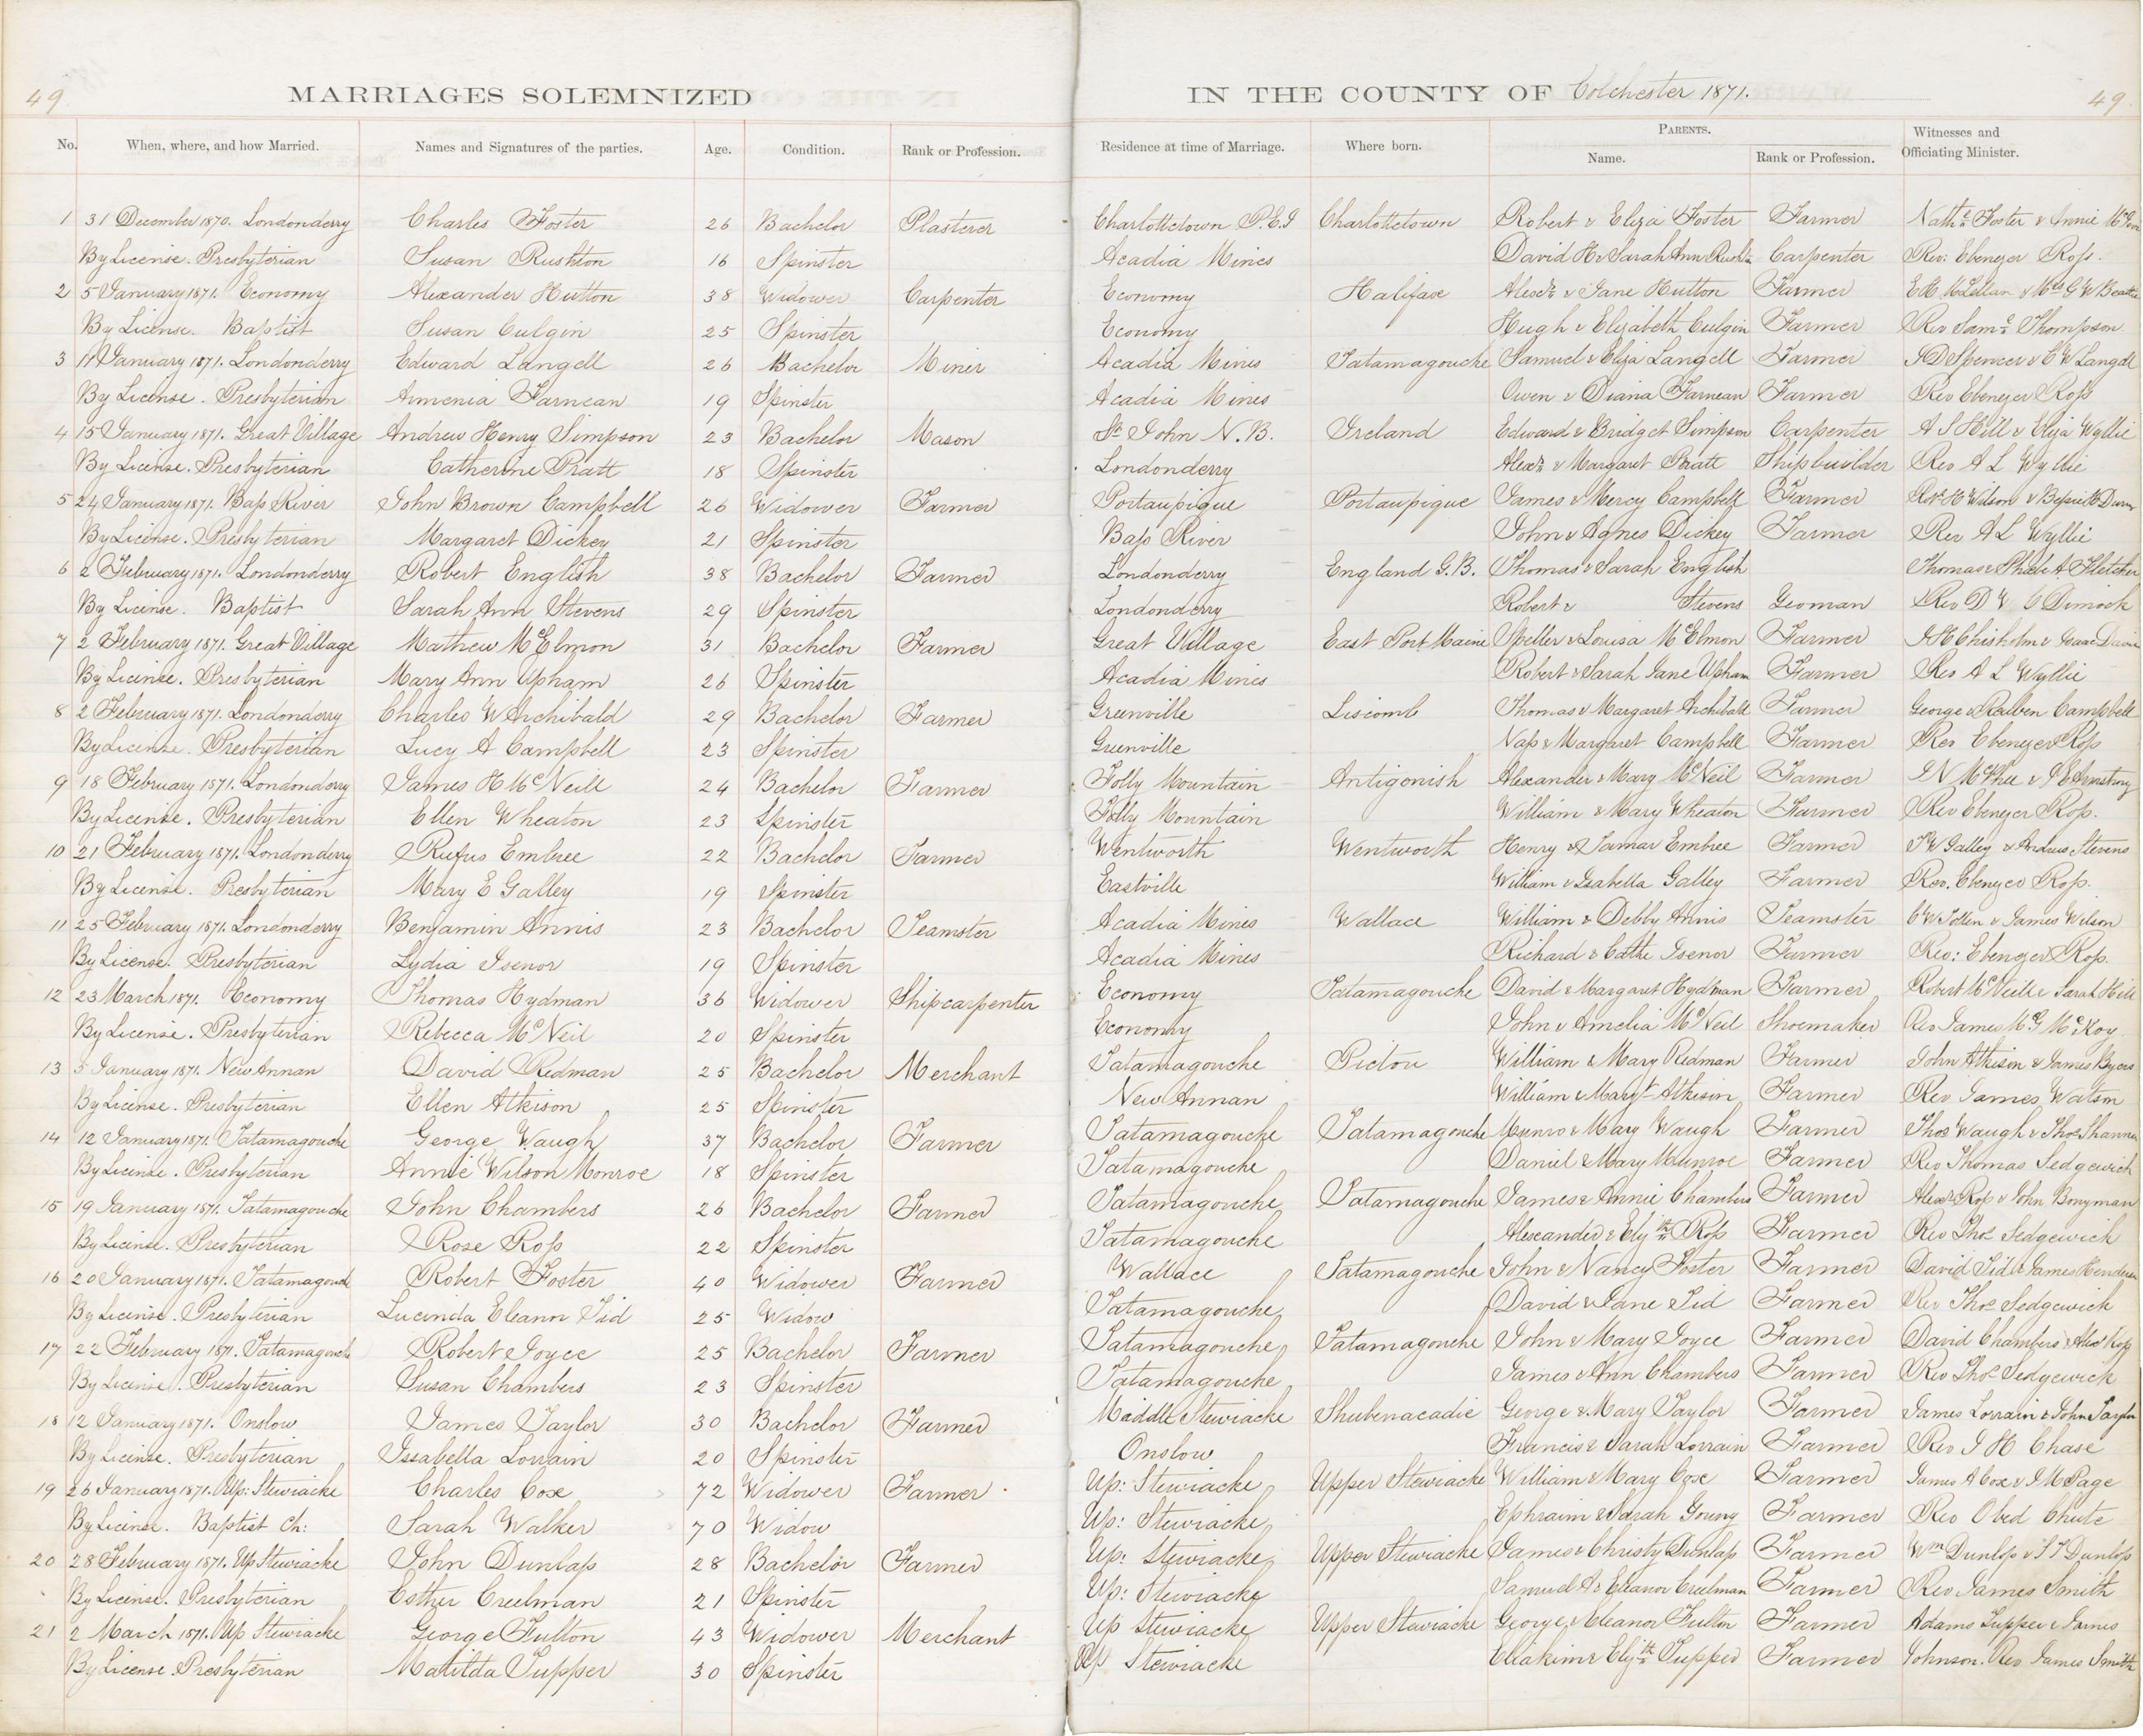 49
MARRIAGES SOLEMNIZED IN THE COUNTY OF Colchester 1871.
49
No. When, where, and how Married. Names and Signatures of the parties. Age. Condition. Rank or Profession. Residence at time of Marriage. Where born. PARENTS. Name. Rank or Profession. Witnesses and Officiating Minister.
1 31 December 1870. Londonderry Charles Foster 26 Bachelor Plasterer Charlottetown P.E.I Charlottetown Robert & Eliza Foster Farmer Nathl Foster & Annie
By License. Presbyterian Susan Rushton 16 Spinster Acadia Mines David H & Sarah Ann Carpenter Rev: Ebenezer Ross.
2 5 January 1871. Economy Alexander Hutton 38 Widower Carpenter Economy Halifax Alexr & Jane Hutton Farmer E H McLellan & Mrs G W Beattie
By License. Baptist Susan Culgin 25 Spinster Economy Hugh & Elizabeth Culgin Farmer Rev Saml Thompson
3 11 January 1871. Londonderry Edward Langell 26 Bachelor Miner Acadia Mines Tatamagouche Samuel & Eliza Langell Farmer J D Spencer & C W Langell
By License. Presbyterian Armenia Farnean 19 Spinster Acadia Mines Owen & Diana Farnean Farmer Rev Ebenezer Ross
4 15 January 1871. Great Village Andrew Henry Simpson 23 Bachelor Mason St John N.B. Ireland Edward & Bridget Simpson Carpenter A S Hill & Eliza Wyllie
By License. Presbyterian Catherine Pratt 18 Spinster Londonderry Alexr & Margaret Pratt Shipbuilder Rev A L Wyllie
5 24 January 1871. Bass River John Brown Campbell 26 Widower Farmer Portaupique Portaupique James & Mercy Campbell Farmer Wilson &
By License. Presbyterian Margaret Dickey 21 Spinster Bass River John & Agnes Dickey Farmer Rev A L Wyllie
6 2 February 1871. Londonderry Robert English 38 Bachelor Farmer Londonderry England G.B. Thomas & Sarah English Thomas & Phebe A Fletcher
By License. Baptist Sarah Ann Stevens 29 Spinster Londonderry Robert & Stevens Yeoman Rev D W C Dimock
7 2 February 1871. Great Village Mathew McElmon 31 Bachelor Farmer Great Village East Port Maine Speller & Louisa McElmon Farmer J H Chisholm & Isaac
By License. Presbyterian Mary Ann Upham 26 Spinster Acadia Mines Robert & Sarah Jane Upham Farmer Rev A L Wyllie
8 2 February 1871. Londonderry Charles W Archibald 29 Bachelor Farmer Greenville Liscomb Thomas & Margaret Archibald Farmer George & Reuben Campbell
By License. Presbyterian Lucy A Campbell 23 Spinster Greenville & Margaret Campbell Farmer Rev Ebenezer Ross
9 18 February 1871. Londonderry James H McNeill 24 Bachelor Farmer Folly Mountain Antigonish Alexander & Mary McNeil Farmer J N McPhee & J E Armstrong
By License. Presbyterian Ellen Wheaton 23 Spinster Folly Mountain William & Mary Wheaton Farmer Rev Ebenezer Ross.
10 21 February 1871. Londonderry Rufus Embree 22 Bachelor Farmer Wentworth Wentworth Henry & Tamar Embree Farmer T W Galley & Andrew Stevens
By License. Presbyterian Mary E Galley 19 Spinster Eastville William & Isabella Galley Farmer Rev. Ebenezer Ross.
11 25 February 1871. Londonderry Benjamin Annis 23 Bachelor Teamster Acadia Mines Wallace William & Debby Annis Teamster C W & James Wilson
By License. Presbyterian Lydia Isenor 19 Spinster Acadia Mines Richard & Cathe Isenor Farmer Rev: Ebenezer Ross.
12 23 March 1871. Economy Thomas Hydman 36 Widower Shipcarpenter Economy Tatamagouche David & Margaret Hydman Farmer Robert McNeill & Sarah Hill
By License. Presbyterian Rebecca McNeil 20 Spinster Economy John & Amelia McNeil Shoemaker Rev James McG McKay
13 5 January 1871. New Annan David Redman 25 Bachelor Merchant Tatamagouche Pictou William & Mary Redman Farmer John Atkison & James Byers
By License. Presbyterian Ellen Atkison 25 Spinster New Annan William & Mary Atkison Farmer Rev James Watson
14 12 January 1871. Tatamagouche George Waugh 37 Bachelor Farmer Tatamagouche Tatamagouche Munro & Mary Waugh Farmer Thos Waugh & Thos
By License. Presbyterian Annie Wilson Monroe 18 Spinster Tatamagouche Daniel & Mary Munroe Farmer Rev Thomas Sedgewick
15 19 January 1871. Tatamagouche John Chambers 26 Bachelor Farmer Tatamagouche Tatamagouche James & Annie Chambers Farmer Alexr Ross & John Bonyman
By License. Presbyterian Rose Ross 22 Spinster Tatamagouche Alexander & Elizth Ross Farmer Rev Thos Sedgewick
16 20 January 1871. Tatamagouch Robert Foster 40 Widower Farmer Wallace Tatamagouche John & Nancy Foster Farmer David Tid & James Henderson
By License. Presbyterian Lucinda Eleanor Tid 25 Widow Tatamagouche David & Jane Tid Farmer Rev Thos Sedgewick
17 22 February 1871. Tatamagouche Robert Joyce 25 Bachelor Farmer Tatamagouche Tatamagouche John & Mary Joyce Farmer David Chambers & Alex Ross
By License. Presbyterian Susan Chambers 23 Spinster Tatamagouche James & Ann Chambers Farmer Rev Thos Sedgewick
18 12 January 1871. Onslow James Taylor 30 Bachelor Farmer Middle Stewiacke Shubenacadie George & Mary Taylor Farmer James Lorrain & John Taylor
By License. Presbyterian Issabella Lorrain 20 Spinster Onslow Francis & Sarah Lorrain Farmer Rev J H Chase
19 26 January 1871. Up: Stewiacke Charles Cox 72 Widower Farmer Up: Stewiacke Upper Stewiacke William & Mary Cox Farmer James A Cox & J M Page
By License. Baptist Ch: Sarah Walker 70 Widow Up: Stewiacke Ephraim & Sarah Young Farmer Rev Obed Chute
20 28 February 1871. Up Stewiacke John Dunlap 28 Bachelor Farmer Up: Stewiacke Upper Stewiacke James & Christy Dunlap Farmer Wm Dunlop & S T Dunlop
By License. Presbyterian Esther Creelman 21 Spinster Up: Stewiacke Samuel A & Eleanor Creelman Farmer Rev James Smith
21 2 March 1871. Up Stewiacke George Fulton 43 Widower Merchant Up Stewiacke Upper Stewiacke George & Eleanor Fulton Farmer Adams Tupper & James
By License. Presbyterian Matilda Tupper 30 Spinster Up Stewiacke Eliakim & Elizth Tupper Farmer Johnson. Rev James Smith